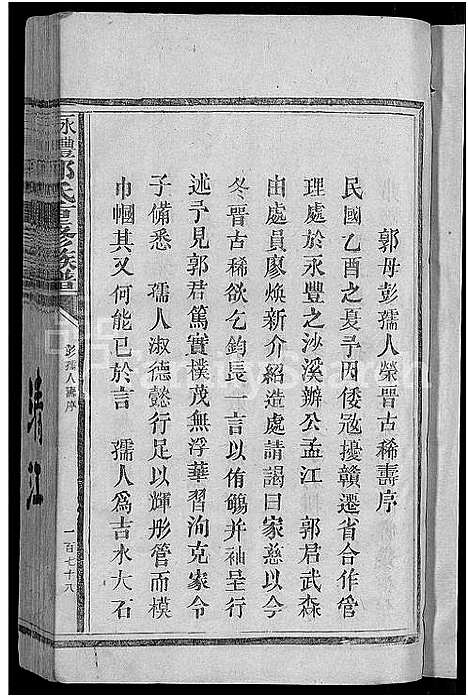 郭母彭孺人榮晉古稀壽序
民國乙酉之夏予因倭寇擾贛遷省合作管
理處於永豐之沙溪辦公孟江　郭君武森
由處員廖煥新介紹造處請謁曰家慈以今
冬晉古稀欲乞鈞長一言以侑觴并袖呈行
述予見郭君篤實樸茂無浮華習洵克家令
子備悉　孺人淑德懿行足以輝彤管而模
巾幗其又何能已於言　孺人爲吉水大石
永豐郭氏重修族譜
彭孺人壽序
一百七十八
清江